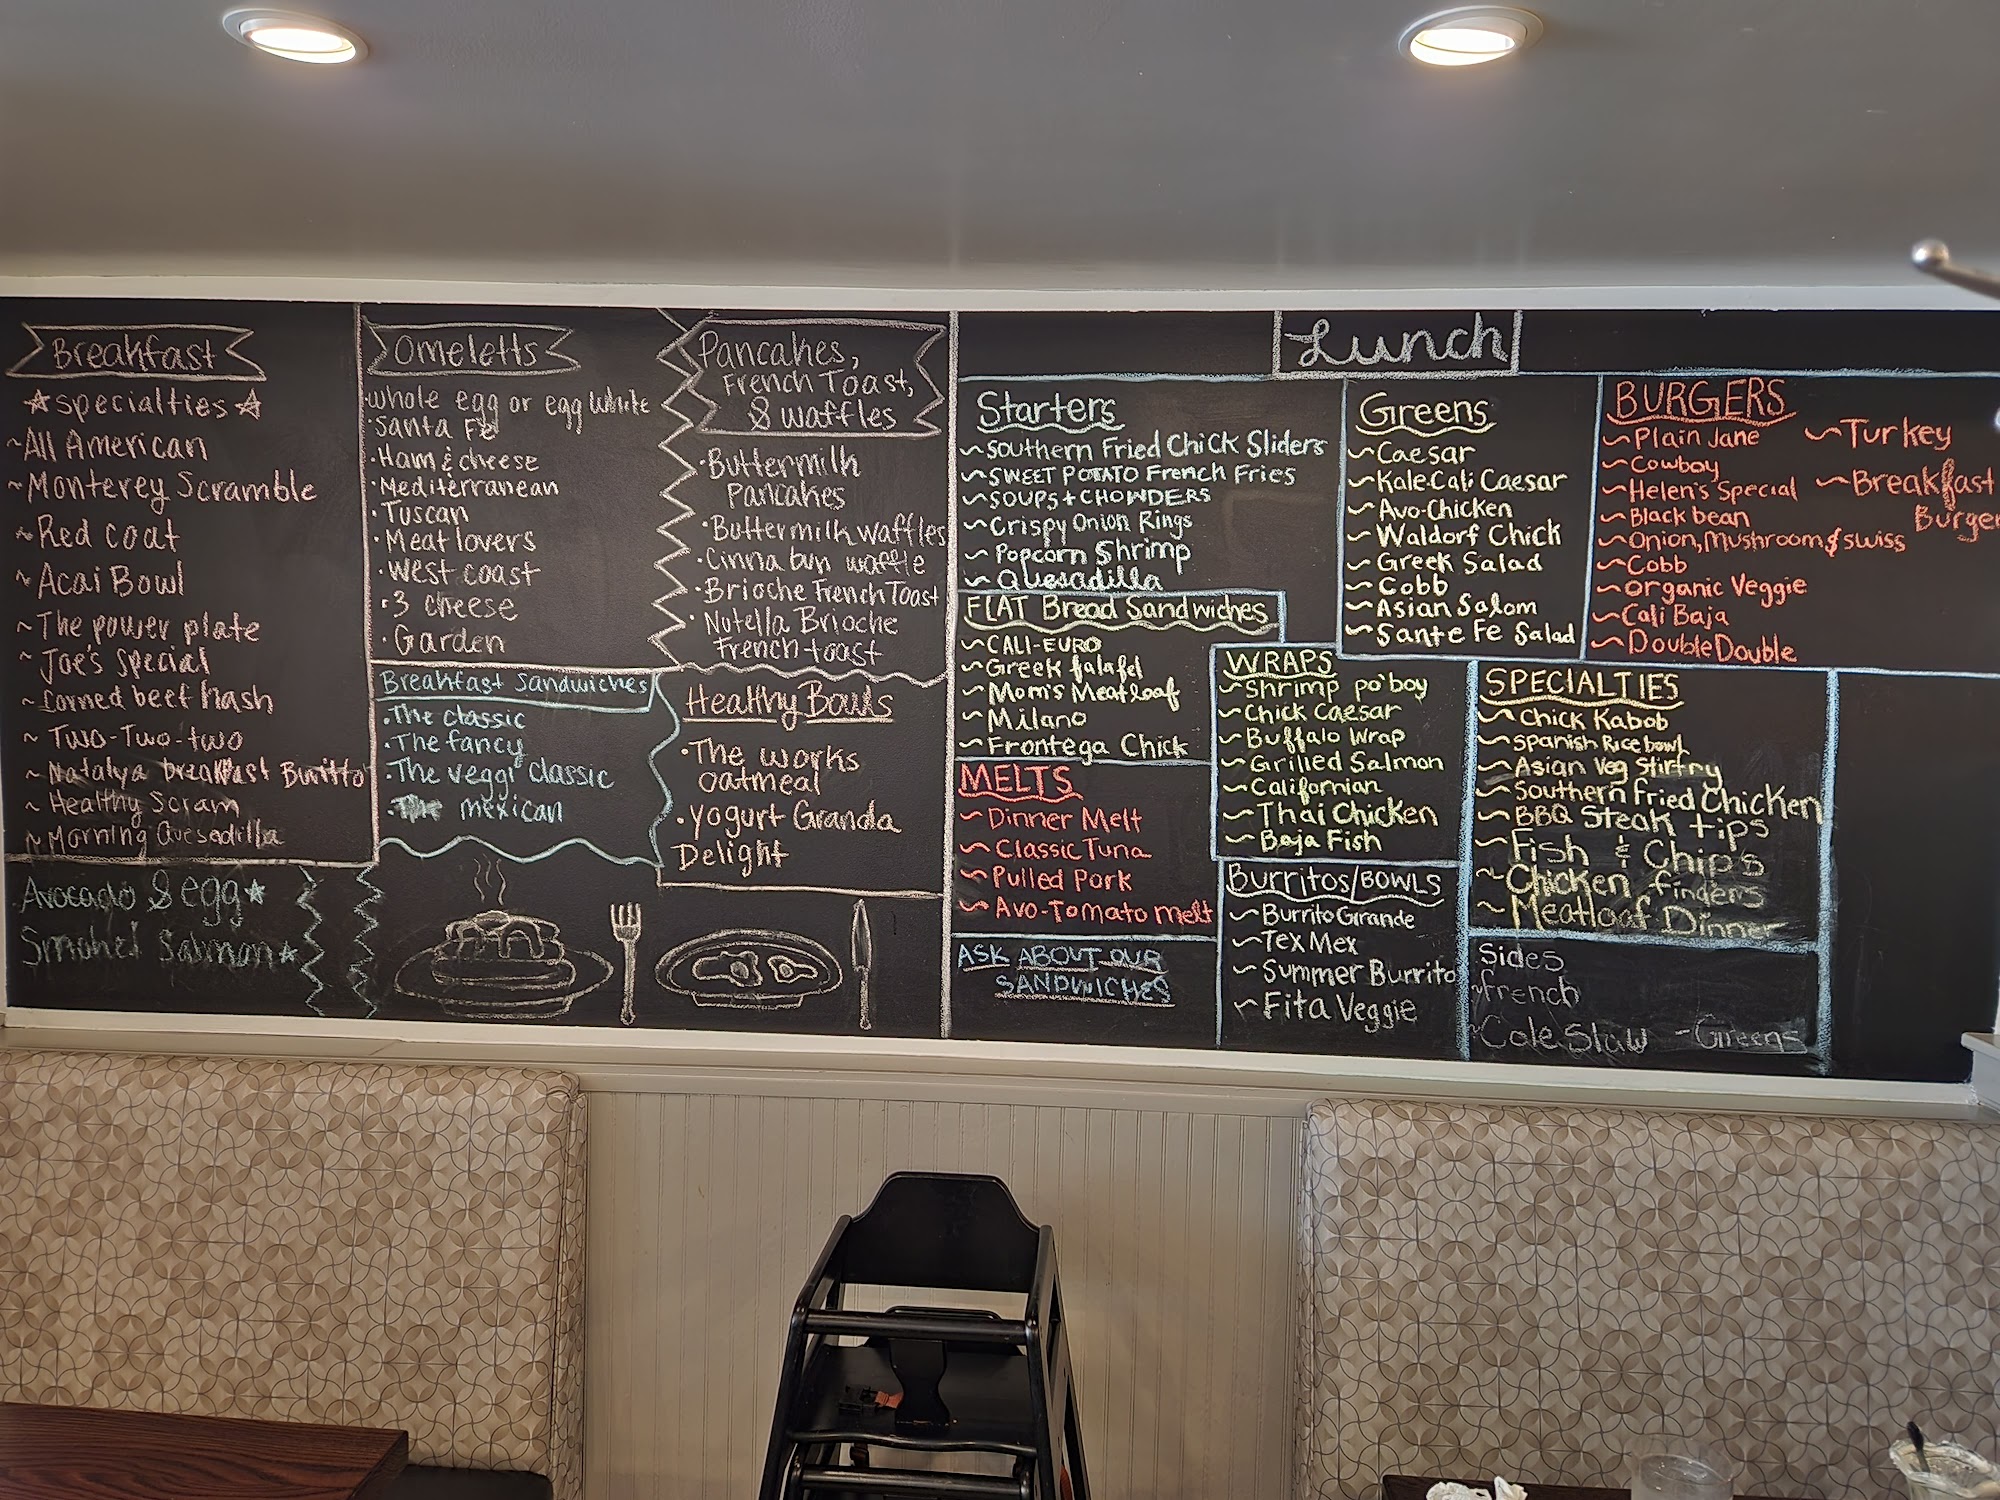 Breakfast
☆specialties☆
~All American
~Monterey Scramble
~Red coat
~Acai Bowl
~The power plate
~Joe's Special
~Corned beef hash
~Two-Two-two
~Natalya breakfast Burrito
~Healthy Scram
~Morning Quesadilla
Avocado & egg★
Smoked Salmon★
Omeletts
whole egg or egg white
·Santa Fe
·Ham & cheese
·Mediterranean
·Tuscan
·Meat lovers
·West coast
·3 cheese
·Garden
Breakfast Sandwiches
·The classic
·The fancy
·The veggi classic
·The mexican
Pancakes,
French Toast,
& waffles
·Buttermilk
Pancakes
·Buttermilk waffles
·Cinna bun waffle
·Brioche French Toast
·Nutella Brioche
French toast
Healthy Bowls
·The works
oatmeal
·Yogurt Granda
Delight
Lunch
Starters
~Southern Fried Chick Sliders
~SWEET POTATO French Fries
~SOUPS + CHOWDERS
~Crispy Onion Rings
~Popcorn Shrimp
~Quesadilla
FLAT Bread Sandwiches
~CALI-EURO
~Greek falafel
~Mom's Meatloaf
~Milano
~Frontega Chick
MELTS
~Dinner Melt
~Classic Tuna
~Pulled Pork
~Avo-Tomato melt
ASK ABOUT OUR
SANDWICHES
Greens
~Caesar
~Kale Cali Caesar
~Avo-Chicken
~Waldorf Chick
~Greek Salad
~Cobb
~Asian Salom
~Sante Fe Salad
WRAPS
~Shrimp po'boy
~Chick Caesar
~Buffalo Wrap
~Grilled Salmon
~Californian
~Thai Chicken
~Baja Fish
Burritos/BOWLS
~Burrito Grande
~Tex Mex
~Summer Burrito
~Fita Veggie
BURGERS
~Plain Jane
~Cowboy
~Helen's Special
~Black bean
~Onion, Mushroom & swiss
~Cobb
~Organic Veggie
~Cali Baja
~Double Double
~Turkey
~Breakfast
Burger
SPECIALTIES
~Chick Kabob
~Spanish Rice bowl
~Asian Veg Stirfry
~Southern Fried Chicken
~BBQ Steak tips
~Fish & Chips
~Chicken fingers
~Meatloaf Dinner
Sides
~french
~Cole Slaw -Greens